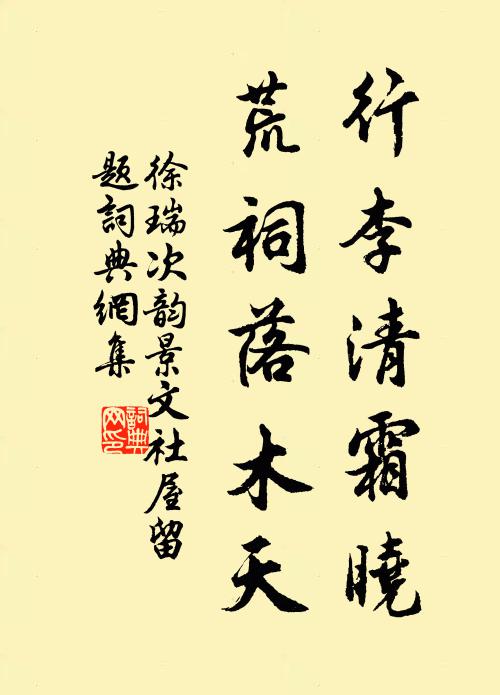 行李清霜曉
荒祠落木天
徐瑞次韵景文社屋留
題詞典網集
詞典网印